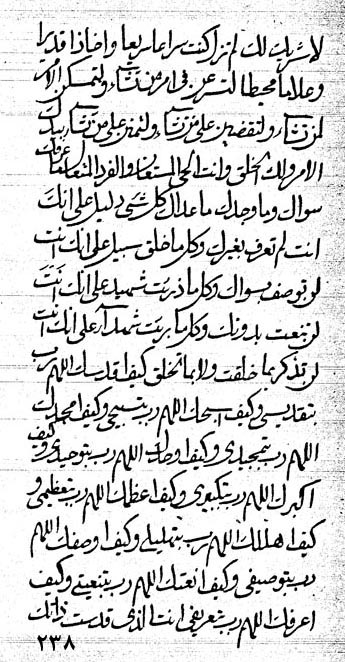 لا شريك لك لم تزل كنت سراعا ربعا واخاذا قديرا
وعلاما محيطا لتسرعن في امر من تشاء ولتمسكن الامر
لمن تشاء ولتقضين على من تشاء ولتمنن على من تشاء بيدك
الامر ولك الخلق وانت الحي المستعان والفرد المتعال ما عرفك
سواك وما وجدك ما عداك كل شيء دليل على انك
انت لم تعرف بغيرك وكل ما خلق سبيل على انك انت
لن توصف بسواك وكل ما ذرئت شهيد على انك انت
لن تنعت بدونك وكل ما برئت شهداء على انك انت
لن تذكر بما خلقت ولا بما تخلق كيف اقدسك اللهم رب
بتقديسي وكيف اسبحك اللهم رب بتسبيحي وكيف امجدك
اللهم رب بتمجيدي وكيف اوحدك اللهم رب بتوحيدي وكيف
اكبرك اللهم رب بتكبيري وكيف اعظمك اللهم رب بتعظيمي و
كيف اهللك اللهم رب بتهليلي وكيف اوصفك اللهم
رب بتوصيفي وكيف انعتك اللهم رب بتنعيتي وكيف
اعرفك اللهم رب بتعريفي انت الذي قدست ذاتك
٢٣٨